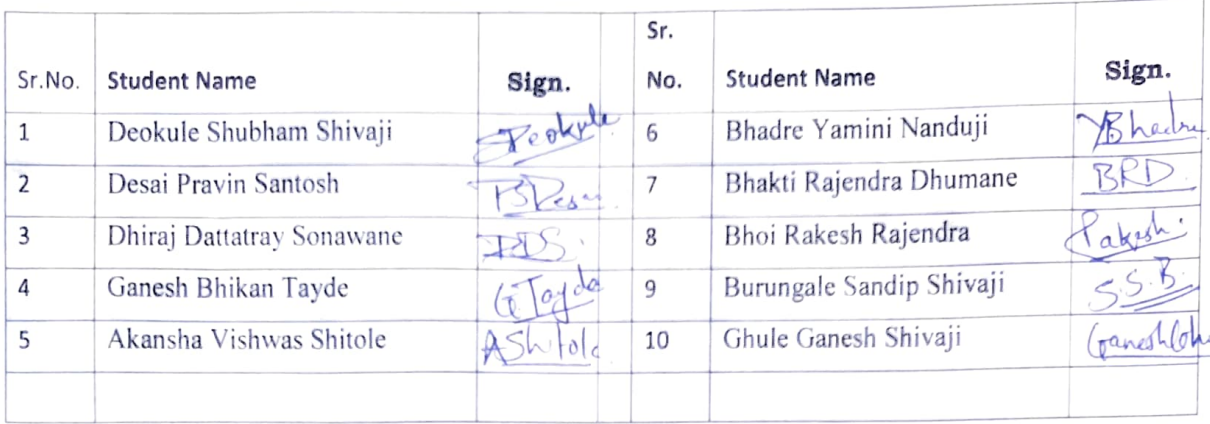 Sr.
Sr.No. Student Name Sign. No. Student Name Sign.
1 Deokule Shubham Shivaji Deokule 6 Bhadre Yamini Nanduji YBhadre
2 Desai Pravin Santosh 7 Bhakti Rajendra Dhumane BRD
3 Dhiraj Dattatray Sonawane DDS. 8 Bhoi Rakesh Rajendra Rakesh
4 Ganesh Bhikan Tayde GTayde 9 Burungale Sandip Shivaji S.S.B.
5 Akansha Vishwas Shitole AShitole 10 Ghule Ganesh Shivaji Ganesh